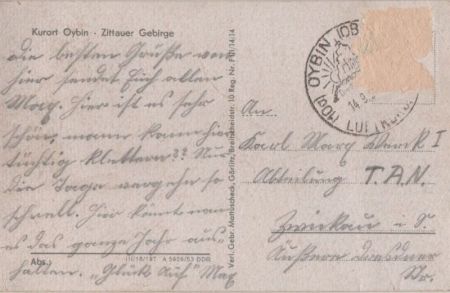 Kurort Oybin · Zittauer Gebirge
die besten Grüße von
hier sendet Euch allen
Max. Hier ist es sehr
schön, mann kann hier
tüchtig klettern?? Nur
die Tage vergehn so
schnell. Hier könnt man
es das ganze Jahr aus-
halten. „Glück auf" Max
Abs.:
III/18/197 A 5926/53 DDR
Verl. Gebr. Mattuscheck, Görlitz, Breitscheidstr. 10 Reg. Nr.
(10a) OYBIN
14.9.
LUFTKUR
An
Karl Marx Werk I
Abteilung T.A.N.
Zwickau i. S.
Äußere Dresdner
Str.